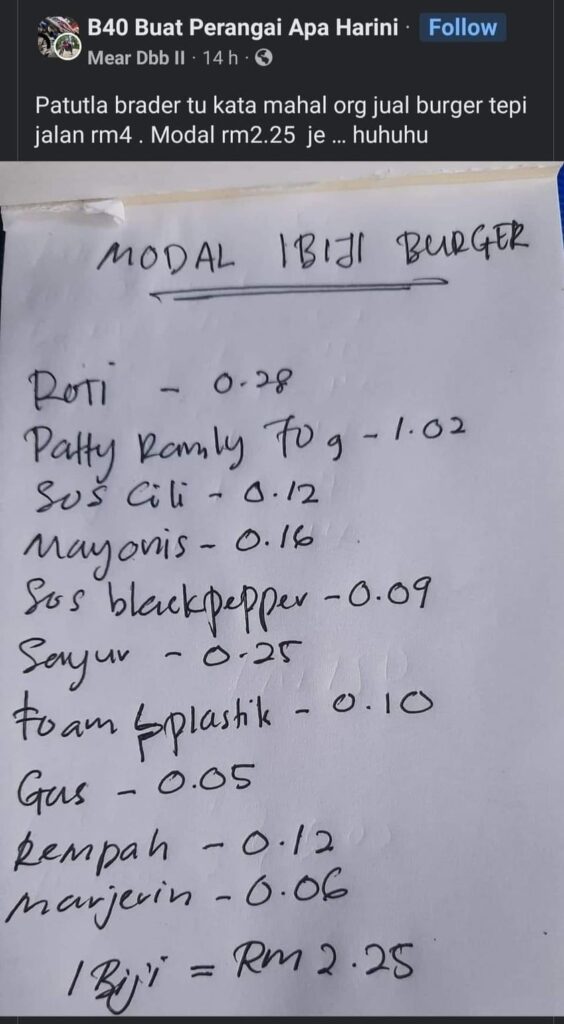 B40 Buat Perangai Apa Harini · Follow
Mear Dbb II · 14 h ·
Patutla brader tu kata mahal org jual burger tepi
jalan rm4 . Modal rm2.25 je ... huhuhu
MODAL 1 BIJI BURGER
ROTI - 0.28
Patty Ramly 70 g - 1.02
Sos Cili - 0.12
Mayonis - 0.16
Sos blackpepper - 0.09
Sayur - 0.25
foam & plastik - 0.10
Gas - 0.05
Rempah - 0.12
Marjerin - 0.06
1 Biji = RM 2.25